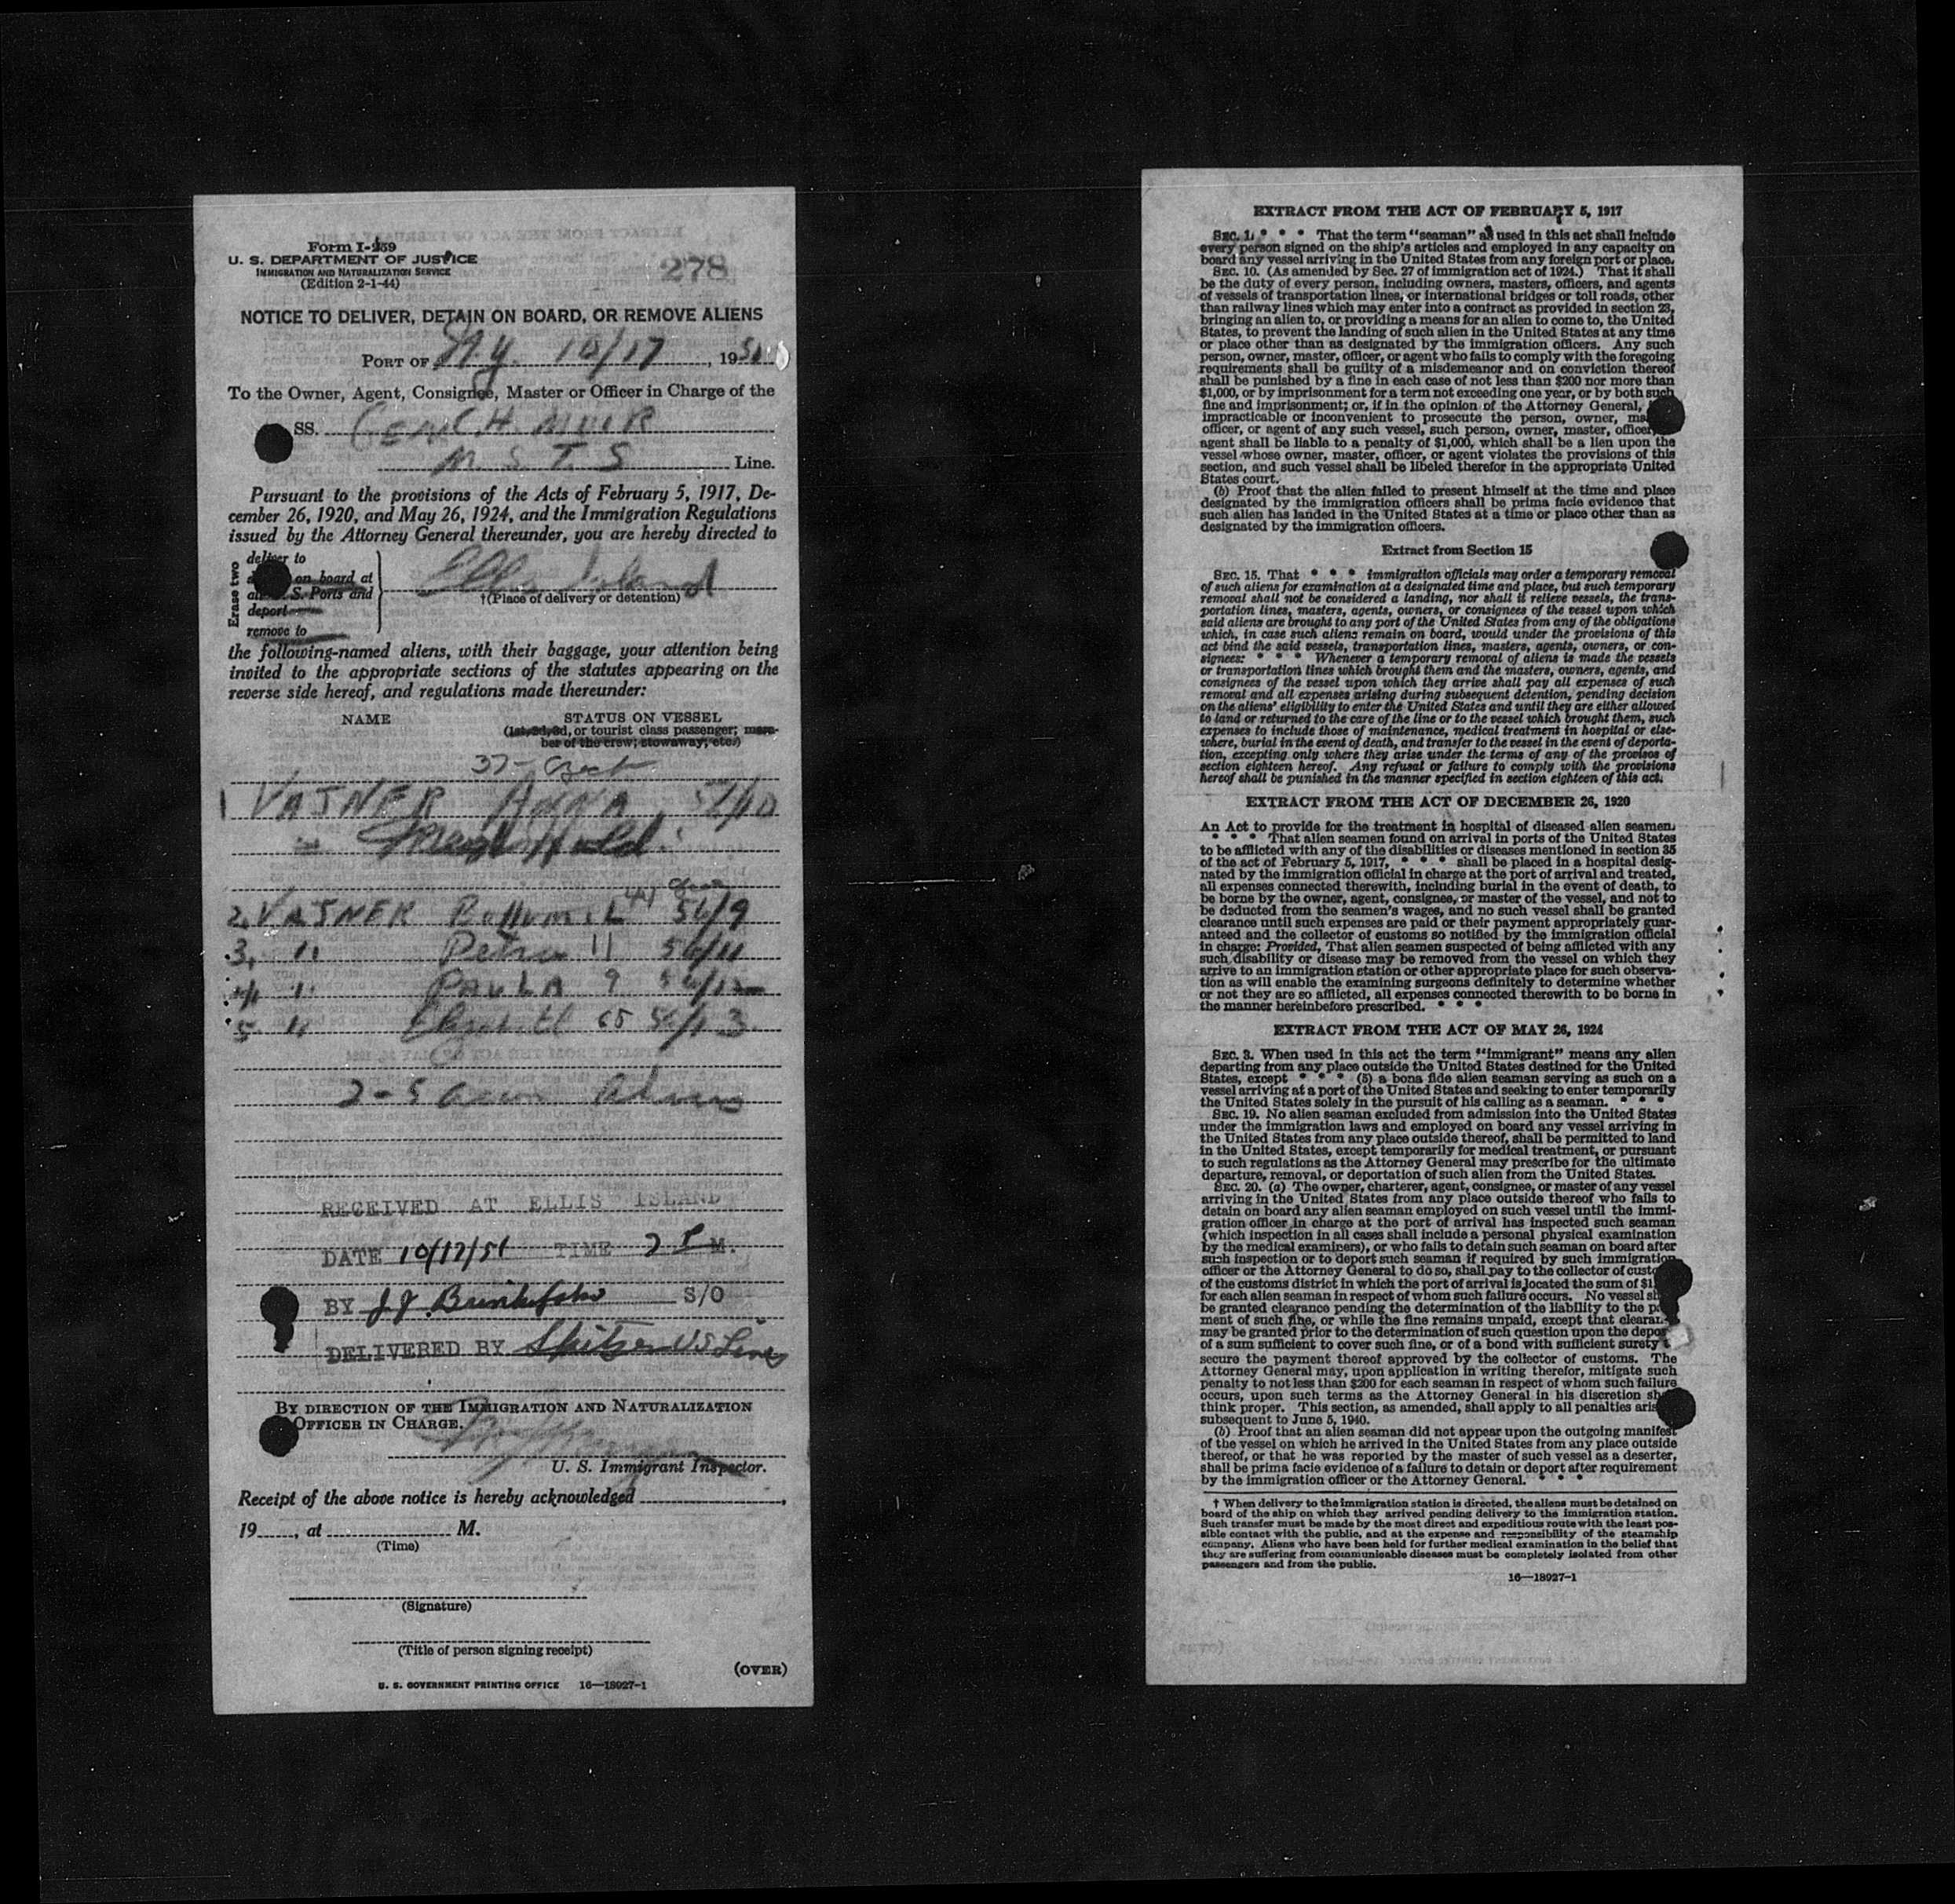 Form I-259
U. S. DEPARTMENT OF JUSTICE
IMMIGRATION AND NATURALIZATION SERVICE
(Edition 2-1-44)
278
NOTICE TO DELIVER, DETAIN ON BOARD, OR REMOVE ALIENS
PORT OF N.Y. 10/17, 1951
To the Owner, Agent, Consignee, Master or Officer in Charge of the
SS. Gen C.H. MUIR
M. S. T. S Line.
Pursuant to the provisions of the Acts of February 5, 1917, De-
cember 26, 1920, and May 26, 1924, and the Immigration Regulations
issued by the Attorney General thereunder, you are hereby directed to
Erase two
deliver to
on board at
S. Ports and
deport
remove to
Ellis Island
†(Place of delivery or detention)
the following-named aliens, with their baggage, your attention being
invited to the appropriate sections of the statutes appearing on the
reverse side hereof, and regulations made thereunder:
NAME STATUS ON VESSEL
(1st, 2d, 3d, or tourist class passenger; mem-
ber of the crew; stowaway, etc.)
37
1 VAJNER ANNA /10
Hold.
2, VAJNER 44 56/9
3, " Petra 11 56/11
4, " PAULA 9 56/12
5 " 65 56/13
2-5
RECEIVED AT ELLIS ISLAND
DATE 10/17/51 TIME 2 P M.
BY J.J. S/O
DELIVERED BY Spitzer US Lines
BY DIRECTION OF THE IMMIGRATION AND NATURALIZATION
OFFICER IN CHARGE.
U. S. Immigrant Inspector.
Receipt of the above notice is hereby acknowledged ,
19 , at M.
(Time)
(Signature)
(Title of person signing receipt)
(OVER)
U. S. GOVERNMENT PRINTING OFFICE 16—18927-1
EXTRACT FROM THE ACT OF FEBRUARY 5, 1917
SEC. 1. * * * That the term "seaman" as used in this act shall include
every person signed on the ship's articles and employed in any capacity on
board any vessel arriving in the United States from any foreign port or place.
SEC. 10. (As amended by Sec. 27 of immigration act of 1924.) That it shall
be the duty of every person, including owners, masters, officers, and agents
of vessels of transportation lines, or international bridges or toll roads, other
than railway lines which may enter into a contract as provided in section 23,
bringing an alien to, or providing a means for an alien to come to, the United
States, to prevent the landing of such alien in the United States at any time
or place other than as designated by the immigration officers. Any such
person, owner, master, officer, or agent who fails to comply with the foregoing
requirements shall be guilty of a misdemeanor and on conviction thereof
shall be punished by a fine in each case of not less than $200 nor more than
$1,000, or by imprisonment for a term not exceeding one year, or by both such
fine and imprisonment; or, if in the opinion of the Attorney General,
impracticable or inconvenient to prosecute the person, owner, ma
officer, or agent of any such vessel, such person, owner, master, officer
agent shall be liable to a penalty of $1,000, which shall be a lien upon the
vessel whose owner, master, officer, or agent violates the provisions of this
section, and such vessel shall be libeled therefor in the appropriate United
States court.
(b) Proof that the alien failed to present himself at the time and place
designated by the immigration officers shall be prima facie evidence that
such alien has landed in the United States at a time or place other than as
designated by the immigration officers.
Extract from Section 15
SEC. 15. That * * * immigration officials may order a temporary removal
of such aliens for examination at a designated time and place, but such temporary
removal shall not be considered a landing, nor shall it relieve vessels, the trans-
portation lines, masters, agents, owners, or consignees of the vessel upon which
said aliens are brought to any port of the United States from any of the obligations
which, in case such aliens remain on board, would under the provisions of this
act bind the said vessels, transportation lines, masters, agents, owners, or con-
signees: * * * Whenever a temporary removal of aliens is made the vessels
or transportation lines which brought them and the masters, owners, agents, and
consignees of the vessel upon which they arrive shall pay all expenses of such
removal and all expenses arising during subsequent detention, pending decision
on the aliens' eligibility to enter the United States and until they are either allowed
to land or returned to the care of the line or to the vessel which brought them, such
expenses to include those of maintenance, medical treatment in hospital or else-
where, burial in the event of death, and transfer to the vessel in the event of deporta-
tion, excepting only where they arise under the terms of any of the provisos of
section eighteen hereof. Any refusal or failure to comply with the provisions
hereof shall be punished in the manner specified in section eighteen of this act.
EXTRACT FROM THE ACT OF DECEMBER 26, 1920
An Act to provide for the treatment in hospital of diseased alien seamen.
* * * That alien seamen found on arrival in ports of the United States
to be afflicted with any of the disabilities or diseases mentioned in section 35
of the act of February 5, 1917, * * * shall be placed in a hospital desig-
nated by the immigration official in charge at the port of arrival and treated,
all expenses connected therewith, including burial in the event of death, to
be borne by the owner, agent, consignee, or master of the vessel, and not to
be deducted from the seamen's wages, and no such vessel shall be granted
clearance until such expenses are paid or their payment appropriately guar-
anteed and the collector of customs so notified by the immigration official
in charge: Provided, That alien seamen suspected of being afflicted with any
such disability or disease may be removed from the vessel on which they
arrive to an immigration station or other appropriate place for such observa-
tion as will enable the examining surgeons definitely to determine whether
or not they are so afflicted, all expenses connected therewith to be borne in
the manner hereinbefore prescribed. * * *
EXTRACT FROM THE ACT OF MAY 26, 1924
SEC. 3. When used in this act the term "immigrant" means any alien
departing from any place outside the United States destined for the United
States, except * * * (5) a bona fide alien seaman serving as such on a
vessel arriving at a port of the United States and seeking to enter temporarily
the United States solely in the pursuit of his calling as a seaman. * * *
SEC. 19. No alien seaman excluded from admission into the United States
under the immigration laws and employed on board any vessel arriving in
the United States from any place outside thereof, shall be permitted to land
in the United States, except temporarily for medical treatment, or pursuant
to such regulations as the Attorney General may prescribe for the ultimate
departure, removal, or deportation of such alien from the United States.
SEC. 20. (a) The owner, charterer, agent, consignee, or master of any vessel
arriving in the United States from any place outside thereof who fails to
detain on board any alien seaman employed on such vessel until the immi-
gration officer in charge at the port of arrival has inspected such seaman
(which inspection in all cases shall include a personal physical examination
by the medical examiners), or who fails to detain such seaman on board after
such inspection or to deport such seaman if required by such immigration
officer or the Attorney General to do so, shall pay to the collector of custo
of the customs district in which the port of arrival is located the sum of $1
for each alien seaman in respect of whom such failure occurs. No vessel sh
be granted clearance pending the determination of the liability to the pa
ment of such fine, or while the fine remains unpaid, except that clearan
may be granted prior to the determination of such question upon the depos
of a sum sufficient to cover such fine, or of a bond with sufficient surety t
secure the payment thereof approved by the collector of customs. The
Attorney General may, upon application in writing therefor, mitigate such
penalty to not less than $200 for each seaman in respect of whom such failure
occurs, upon such terms as the Attorney General in his discretion sh
think proper. This section, as amended, shall apply to all penalties aris
subsequent to June 5, 1940.
(b) Proof that an alien seaman did not appear upon the outgoing manifest
of the vessel on which he arrived in the United States from any place outside
thereof, or that he was reported by the master of such vessel as a deserter,
shall be prima facie evidence of a failure to detain or deport after requirement
by the immigration officer or the Attorney General. * * *
† When delivery to the immigration station is directed, the aliens must be detained on
board of the ship on which they arrived pending delivery to the immigration station.
Such transfer must be made by the most direct and expeditious route with the least pos-
sible contact with the public, and at the expense and responsibility of the steamship
company. Aliens who have been held for further medical examination in the belief that
they are suffering from communicable diseases must be completely isolated from other
passengers and from the public.
16—18927-1